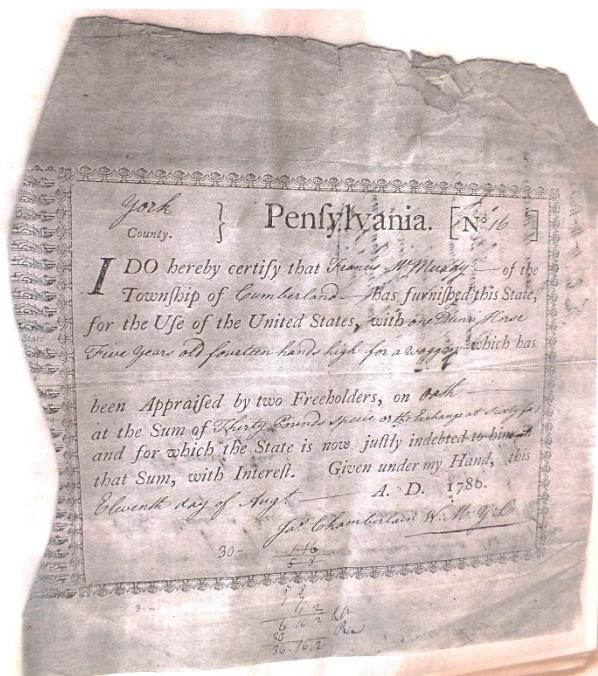 York
County. } Penſylvania. [No. 16 ]
I DO hereby certify that Francis McMurdy of the
Townſhip of Cumberland has furniſhed this State,
for the Uſe of the United States, with one Dunn Horse
Five Years old fourteen hands high for a waggon which has
been Appraiſed by two Freeholders, on oath
at the Sum of Thirty Pounds specie or the Exchange at Sixty for 1
and for which the State is now juſtly indebted to him in
that Sum, with Intereſt. Given under my Hand, this
Eleventh day of Augt A. D. 1780.
Jas Chamberlain W. M. Y. C
30-
1.16
6 16 2
30
36.16.2
State